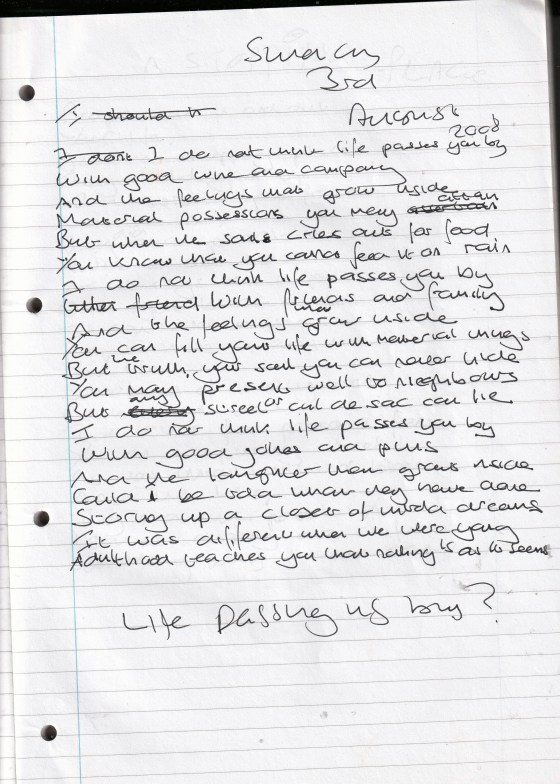 Sunday
3rd
August
2008
I should
I dont I do not think life passes you by
With good wine and company
And the feelings that grow inside
Material possessions you may attain
But when the souls cries out for food
You know that you cannot feed it on rain
I do not think life passes you by
friend With friends and family
And the feelings that grow inside
You can fill your life with material things
But the truth, your soul you can never hide
You may present well to neighbours
But any street or cul de sac can lie
I do not think life passes you by
With good jokes and puns
And the laughter that grows inside
Could I be told what they have done
Storing up a closet of dreams
It was different when we were young
Adulthood teaches you that nothing is as it seems
Life passing us by?